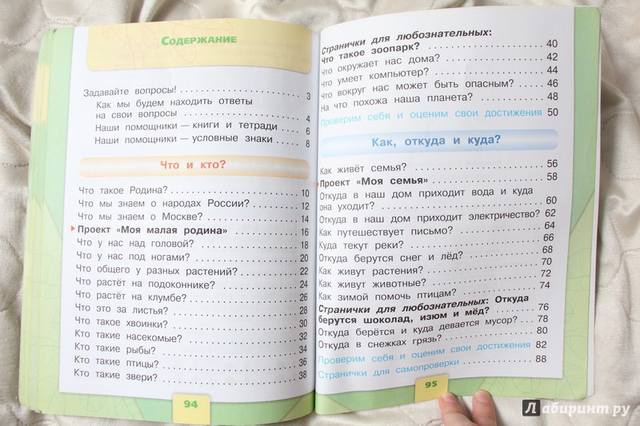 Содержание
Задавайте вопросы! 3
Как мы будем находить ответы
на свои вопросы 4
Наши помощники — книги и тетради 6
Наши помощники — условные знаки 8
Что и кто?
Что такое Родина? 10
Что мы знаем о народах России? 12
Что мы знаем о Москве? 14
Проект «Моя малая родина» 16
Что у нас над головой? 18
Что у нас под ногами? 20
Что общего у разных растений? 22
Что растёт на подоконнике? 24
Что растёт на клумбе? 26
Что это за листья? 28
Что такое хвоинки? 30
Кто такие насекомые? 32
Кто такие рыбы? 34
Кто такие птицы? 36
Кто такие звери? 38
94
Странички для любознательных:
Что такое зоопарк? 40
Что окружает нас дома? 42
Что умеет компьютер? 44
Что вокруг нас может быть опасным? 46
На что похожа наша планета? 48
Проверим себя и оценим свои достижения 50
Как, откуда и куда?
Как живёт семья? 56
Проект «Моя семья» 58
Откуда в наш дом приходит вода и куда
она уходит? 60
Откуда в наш дом приходит электричество? 62
Как путешествует письмо? 64
Куда текут реки? 66
Откуда берутся снег и лёд? 68
Как живут растения? 70
Как живут животные? 72
Как зимой помочь птицам? 74
Странички для любознательных: Откуда
берутся шоколад, изюм и мёд? 76
Откуда берётся и куда девается мусор? 78
Откуда в снежках грязь? 80
Проверим себя и оценим свои достижения 82
Странички для самопроверки 88
95
Лабиринт.ру